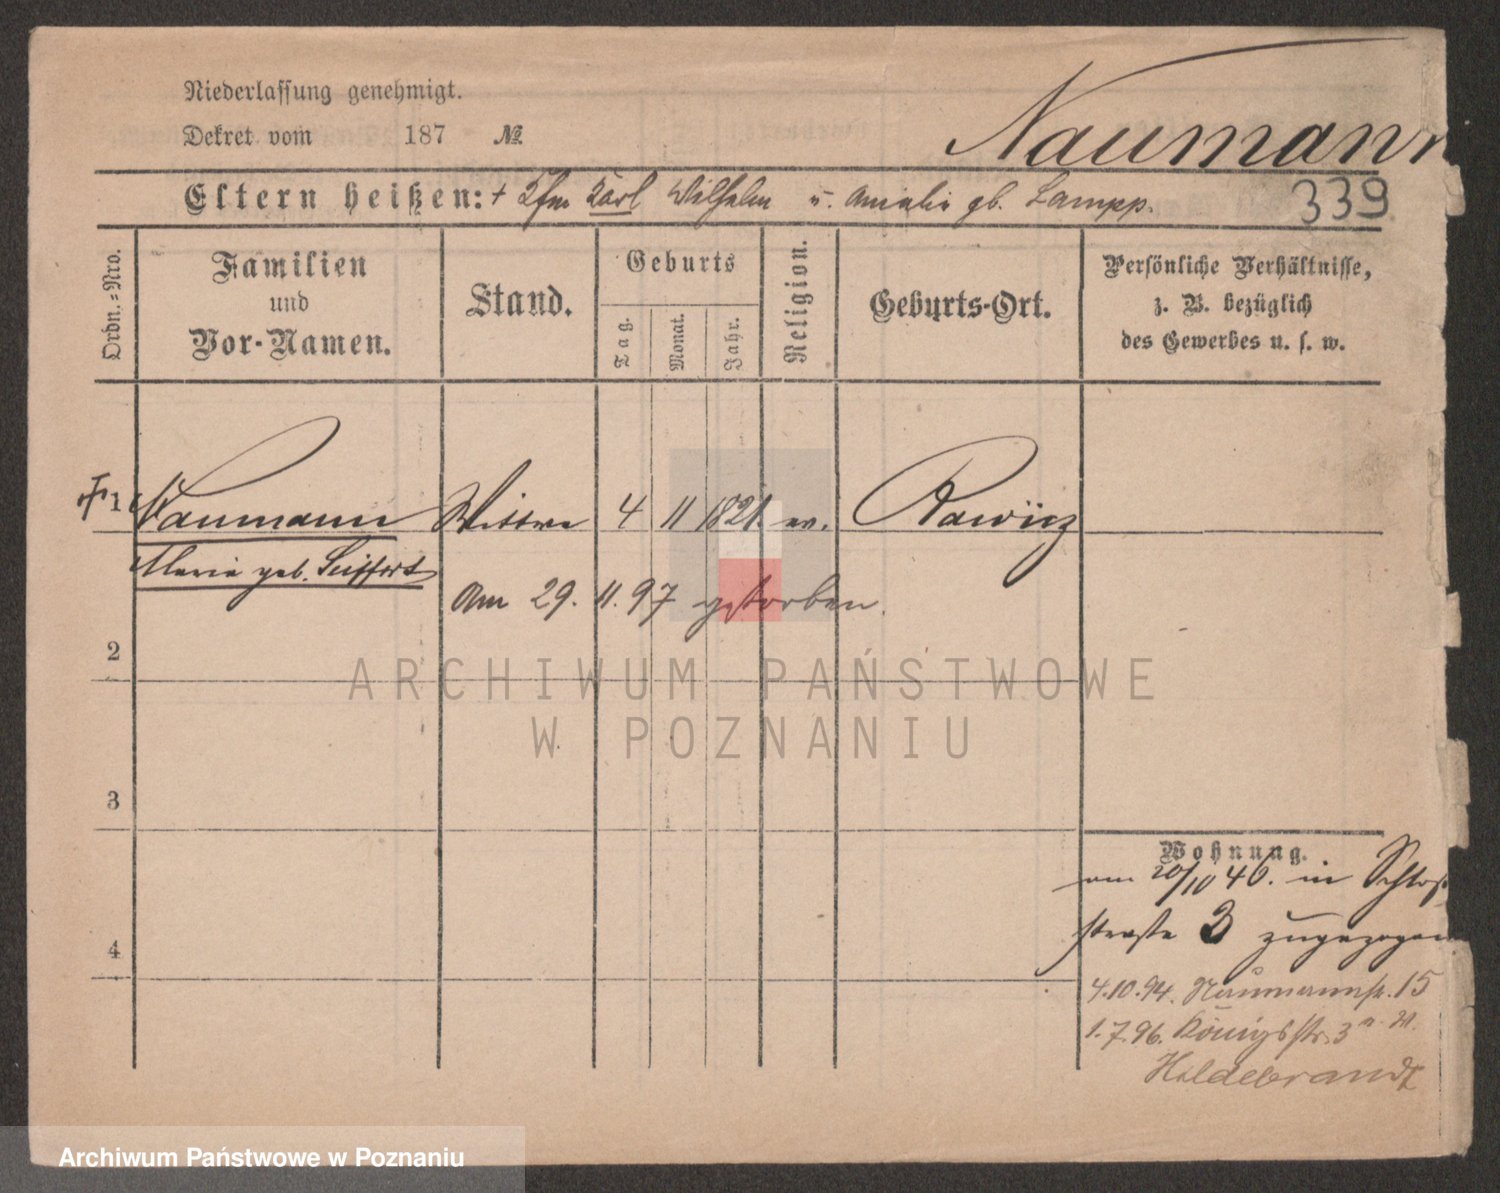 Niederlassung genehmigt.
Dekret vom 187 №
Naumann
339
Eltern heißen: † Karl Wilhelm u. Amalie gb. Lampp.
Ordn.-Nro.
Familien
und
Vor-Namen.
Stand.
Geburts
Tag.
Monat.
Jahr.
Religion.
Geburts-Ort.
Persönliche Verhältnisse,
z. B. bezüglich
des Gewerbes u. s. w.
† 1 Naumann Wittwe 4 11 1821. ev. Rawicz
Marie geb. Seiffert
am 29. 11. 97 gestorben.
2
3
4
Wohnung.
am 20/10 46. in Schloß
straße 3 zugezogen
4.10.94. Naumannstr. 15
1.7.96. Königsstr. 3
Hildebrandt
ARCHIWUM PAŃSTWOWE
W POZNANIU
Archiwum Państwowe w Poznaniu